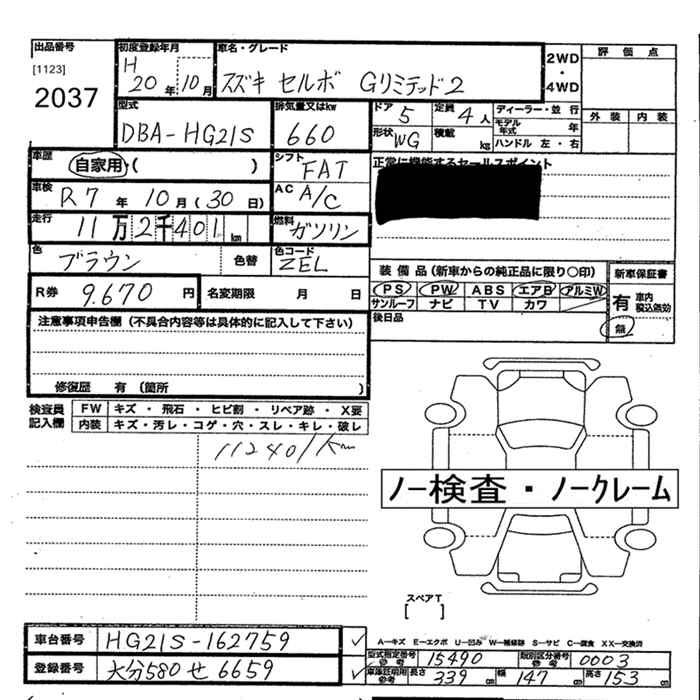 出品番号 初度登録年月 車名・グレード 2WD・4WD 評価点
[1123] H
2037 20年 10月 スズキ セルボ Gリミテッド2
外装 内装
型式 排気量又はkw ドア 5 定員 4人 ディーラー・並行
DBA-HG21S 660 形状 WG 積載 kg モデル年式 年
ハンドル 左・右
車歴 自家用・( ) シフト FAT 正常に機能するセールスポイント
車検 R7年 10月(30日) AC A/C
走行 11万2千401km 燃料 ガソリン
色 ブラウン 色替 色コード ZEL
装備品(新車からの純正品に限り○印) 新車保証書
R券 9.670円 名変期限 月 日
PS PW ABS エアB アルミW 有 車内税込効効
サンルーフ ナビ TV カワ 無
後日品
注意事項申告欄(不具合内容等は具体的に記入して下さい)
修復歴 有(箇所 )
検査員記入欄 FW キズ・飛石・ヒビ割・リペア跡・X要
内装 キズ・汚レ・コゲ・穴・スレ・キレ・破レ
112401km
ノー検査・ノークレーム
スペアT
[ ]
A―キズ E―エクボ U―凹み W―補修跡 S―サビ C―腐食 XX―交換済
車台番号 HG21S-162759
型式指定番号 参考 15490 類別区分番号 参考 0003
登録番号 大分580せ6659
車庫証明用 参考 長さ 339cm 幅 147cm 高さ 153cm